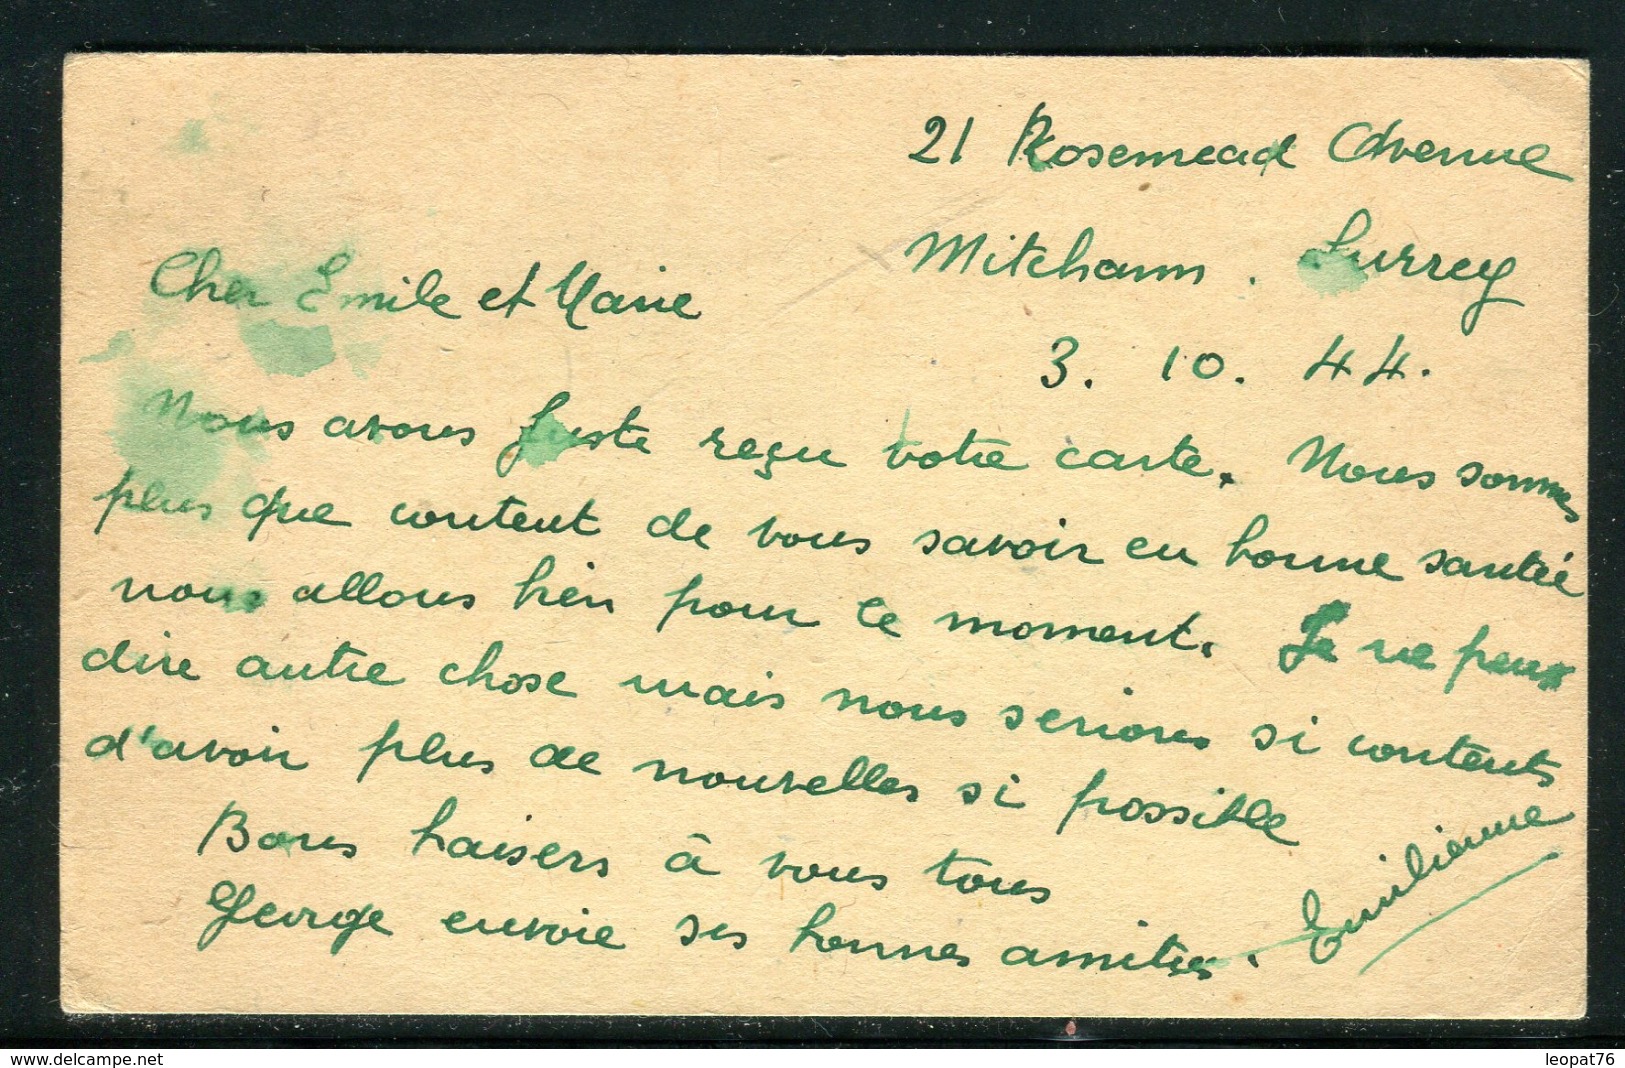 21 Rosemead Avenue
Mitcham. Surrey
3. 10. 44.
Cher Emile et Marie
Nous avons juste reçu votre carte. Nous sommes
plus que content de vous savoir en bonne santée
nous allons bien pour le moment. Je ne peux
dire autre chose mais nous serions si contents
d'avoir plus de nouvelles si possible
Bons baisers à vous tous
George envoie ses bonnes amities.
Emilienne
www.delcampe.net
leopat76